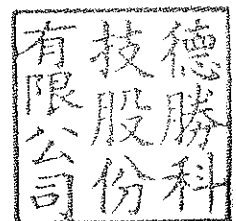 德勝科
技股份
有限公司